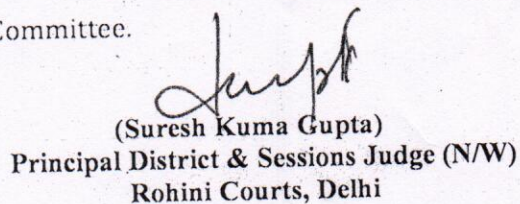 Committee.
(Suresh Kuma Gupta)
Principal District & Sessions Judge (N/W)
Rohini Courts, Delhi